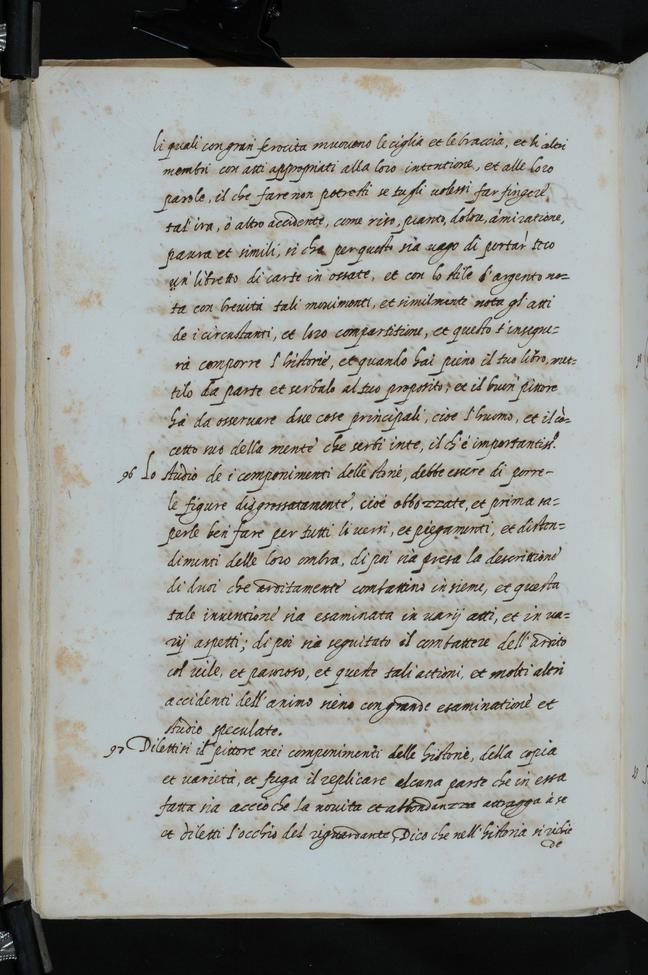 li quali con gran ferocita muoveno le ciglia et le braccia, et li altri
membri con atti appropriati alla loro intentione, et alle loro
parole, il che fare non potresti se tu gli volessi far fingere
tal ira, ò altro accidente, come riso, pianto, dolore, amiratione,
paura et simili, si che per questo sia vago di portar' teco
un' libretto di carte in ossate, et con lo stile d'argento no=
ta con brevità tali movimenti, et similmente nota gl'atti
de i circustanti, et loro compartitione, et questo t'insegne=
rà comporre l'historie, et quando hai pieno il tuo libro, met=
tilo da parte et serbalo al tuo proposito; et il buon' pittore
ha' da osservare due cose principali, cioe l'huomo, et il cõ=
cetto suo della mente che serbi in te, il ch'é importantiss.º
96 Lo studio de i componimenti delle storie, debbe essere di porre=
le figure disgrossatamente, cioé abbozzate, et prima sa=
perle ben' fare per tutti li versi, et piegamenti, et disten=
dimenti delle loro ombra, di poi sia presa la descrittione
di duoi che arditamente combattino insieme, et questa
tale inventione sia esaminata in varij atti, et in va=
rij aspetti; di poi sia seguitato il combattere dell'ardito
col vile, et pauroso, et queste tali attioni, et molti altri
accidenti dell'animo sieno con grande esaminatione et
studio speculate.
97 Dilettisi il pittore nei componimenti delle historie, della copia
et varietà, et fuga il replicare alcuna parte che in essa
fatta sia acciò che la novita et abbondanzza attragga à se
et diletti l'occhio del riguardante, Dico che nell'historia si richie
de